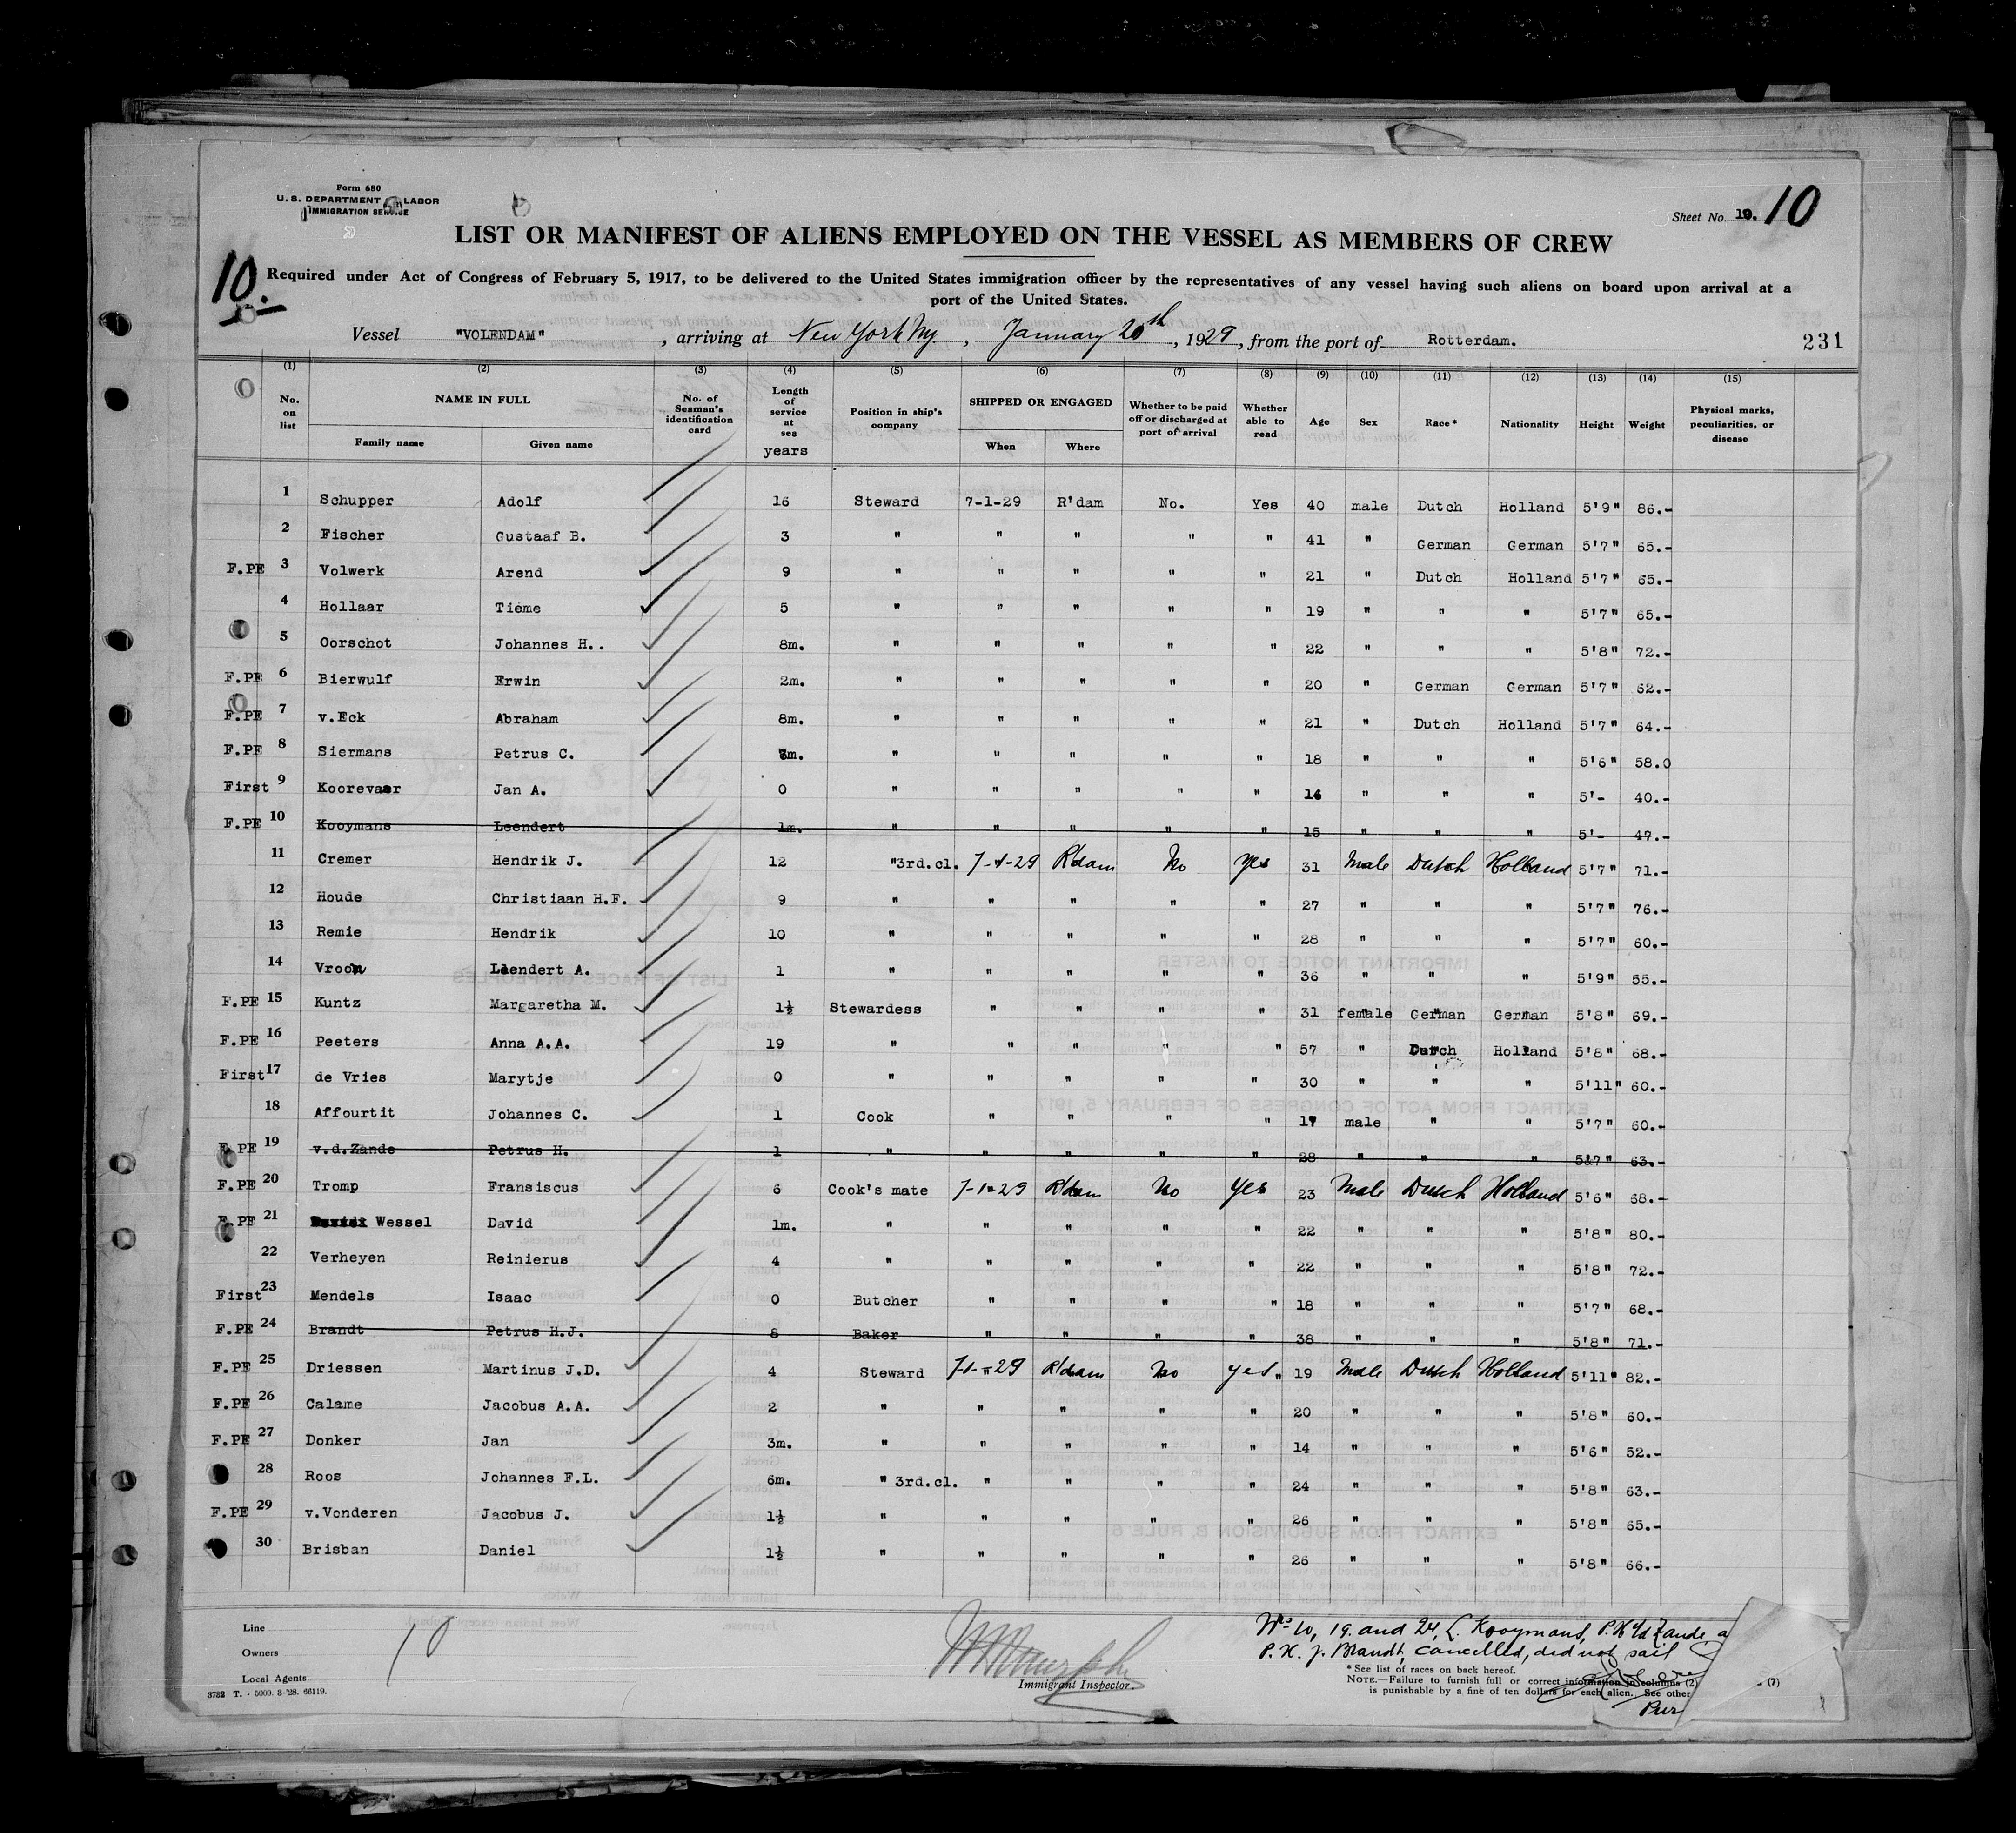 Form 680
U. S. DEPARTMENT OF LABOR
IMMIGRATION SERVICE
Sheet No. 10. 10
LIST OR MANIFEST OF ALIENS EMPLOYED ON THE VESSEL AS MEMBERS OF CREW
10.
Required under Act of Congress of February 5, 1917, to be delivered to the United States immigration officer by the representatives of any vessel having such aliens on board upon arrival at a
port of the United States.
Vessel "VOLENDAM", arriving at New York Ny, January 20th, 1929, from the port of Rotterdam. 231
(1) (2) (3) (4) (5) (6) (7) (8) (9) (10) (11) (12) (13) (14) (15)
No. on list NAME IN FULL Family name Given name No. of Seaman's identification card Length of service at sea years Position in ship's company SHIPPED OR ENGAGED When Where Whether to be paid off or discharged at port of arrival Whether able to read Age Sex Race* Nationality Height Weight Physical marks, peculiarities, or disease
1 Schupper Adolf 16 Steward 7-1-29 R'dam No. Yes 40 male Dutch Holland 5'9" 86.-
2 Fischer Gustaaf B. 3 " " " " " 41 " German German 5'7" 65.-
F.PE 3 Volwerk Arend 9 " " " " " 21 " Dutch Holland 5'7" 65.-
4 Hollaar Tieme 5 " " " " " 19 " " " 5'7" 65.-
5 Oorschot Johannes H.. 8m. " " " " " 22 " " " 5'8" 72.-
F.PE 6 Bierwulf Erwin 2m. " " " " " 20 " German German 5'7" 62.-
F.PE 7 v.Eck Abraham 8m. " " " " " 21 " Dutch Holland 5'7" 64.-
F.PE 8 Siermans Petrus C. " " " " " 18 " " " 5'6" 58.0
First 9 Koorevaar Jan A. 0 " " " " " 14 " " " 5'- 40.-
F.PE 10 Kooymans Leendert 1m. " " " " " 15 " " " 5'- 47.-
11 Cremer Hendrik J. 12 "3rd.cl. 7-1-29 R'dam No yes 31 Male Dutch Holland 5'7" 71.-
12 Houde Christiaan H.F. 9 " " " " " 27 " " " 5'7" 76.-
13 Remie Hendrik 10 " " " " " 28 " " " 5'7" 60.-
14 Vroon Leendert A. 1 " " " " " 36 " " " 5'9" 55.-
F.PE 15 Kuntz Margaretha M. 1½ Stewardess " " " " 31 female German German 5'8" 69.-
F.PE 16 Peeters Anna A.A. 19 " " " " " 57 " Dutch Holland 5'8" 68.-
First 17 de Vries Marytje 0 " " " " " 30 " " " 5'11" 60.-
18 Affourtit Johannes C. 1 Cook " " " " 17 male " " 5'7" 60.-
F.PE 19 v.d.Zande Petrus H. 1 " " " " " 28 " " " 5&7" 63.-
F.PE 20 Tromp Fransiscus 6 Cook's mate 7-1-29 R'dam No yes 23 Male Dutch Holland 5'6" 68.-
F.PE 21 Wessel David 1m. " " " " " 22 " " " 5'8" 80.-
22 Verheyen Reinierus 4 " " " " " 22 " " " 5'8" 72.-
First 23 Mendels Isaac 0 Butcher " " " " 18 " " " 5'7" 68.-
F.PE 24 Brandt Petrus H.J. 8 Baker " " " " 38 " " " 5'8" 71.-
F.PE 25 Driessen Martinus J.D. 4 Steward 7-1-29 R'dam No yes " 19 Male Dutch Holland 5'11" 82.-
F.PE 26 Calame Jacobus A.A. 2 " " " " " 20 " " " 5'8" 60.-
F.PE 27 Donker Jan 3m. " " " " " 14 " " " 5'6" 52.-
28 Roos Johannes F.L. 6m. " 3rd.cl. " " " " 24 " " " 5'8" 63.-
F.PE 29 v.Vonderen Jacobus J. 1½ " " " " " 26 " " " 5'8" 65.-
30 Brisban Daniel 1½ " " " " " 26 " " " 5'8" 66.-
Line
Owners
Local Agents
10
3732 T. - 5000. 3-'28. 66119.
Immigrant Inspector.
Nos 10, 19. and 24, L. Kooymans, P.H. vd Zande a
P. H. J. Brandt, cancelled, did not sail
*See list of races on back hereof.
NOTE.—Failure to furnish full or correct information in columns (2) (7)
is punishable by a fine of ten dollars for each alien. See other
Pur